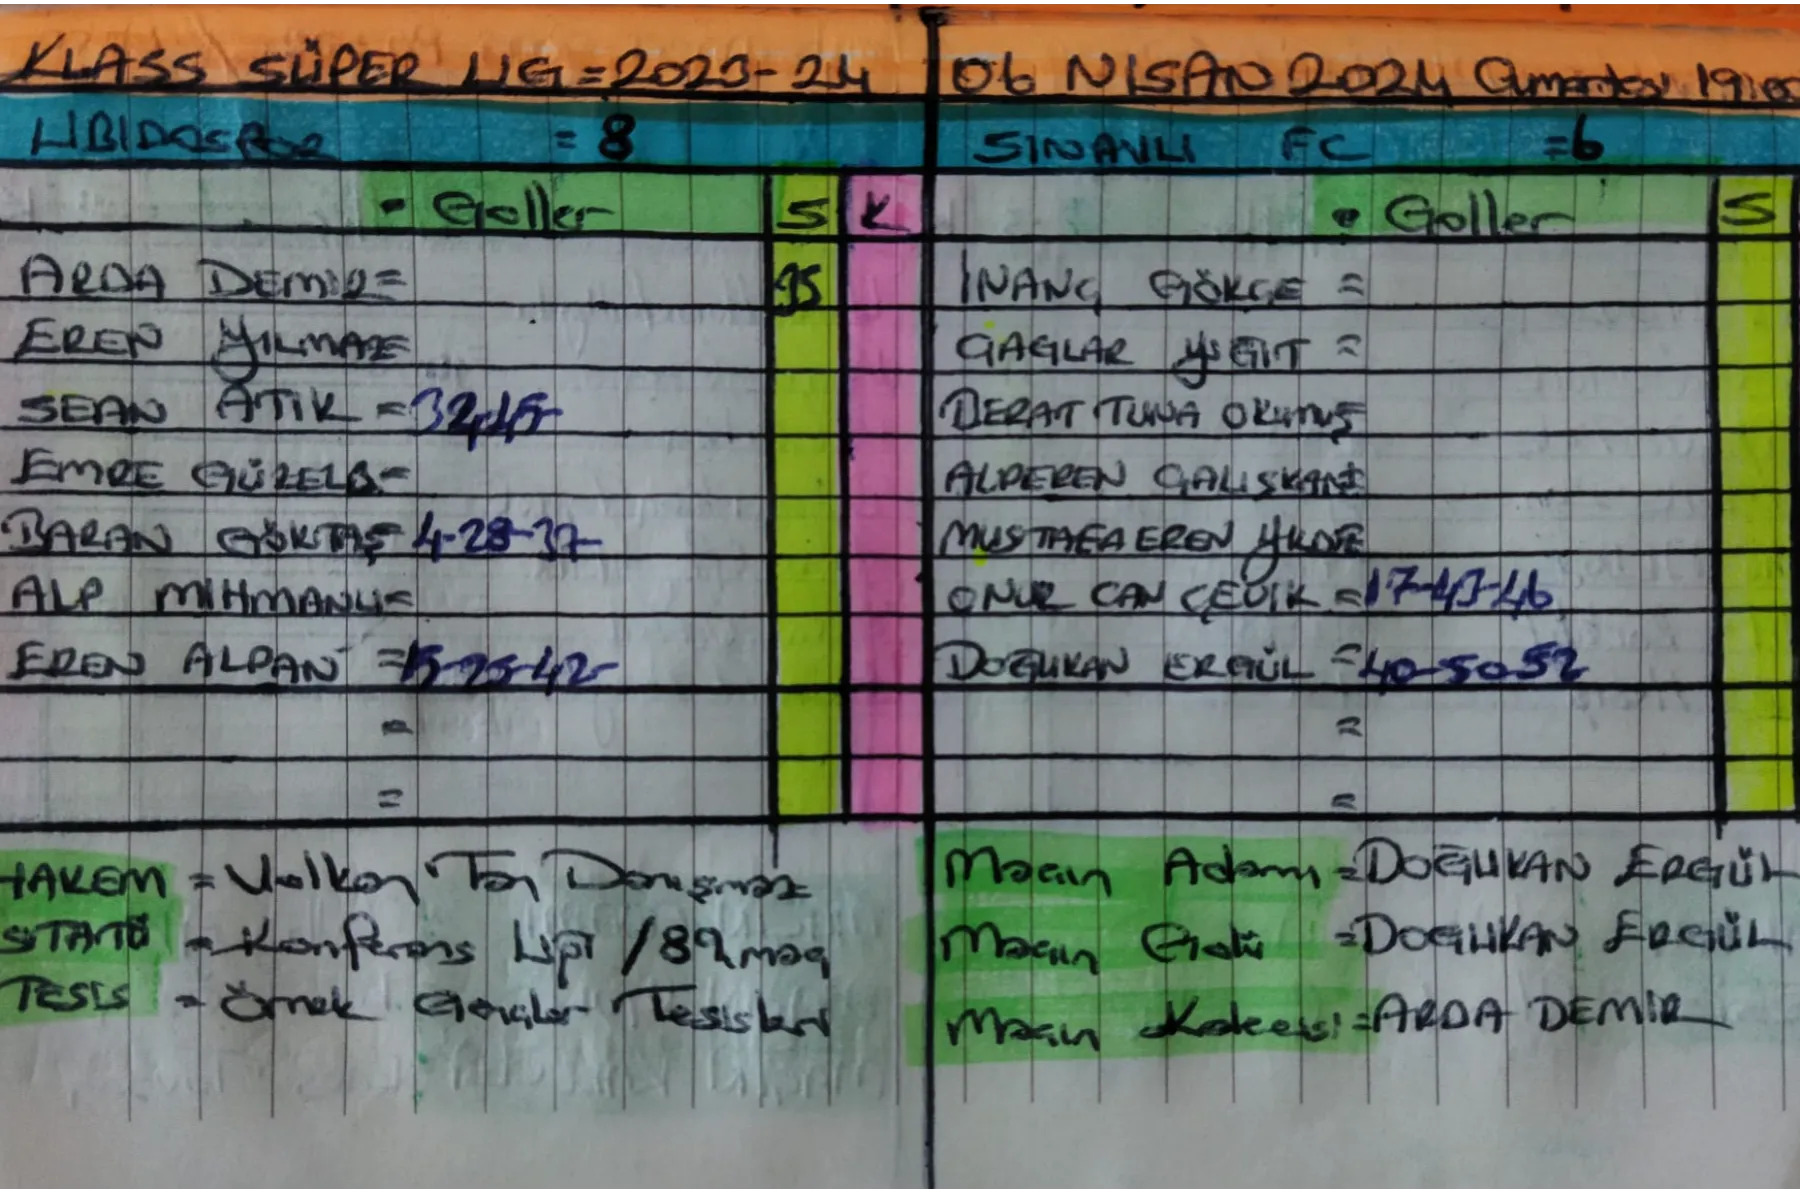 KLASS SÜPER LIG=2023-24
06 NISAN 2024 Cumartesi 19:00
LIBIDOSPOR = 8
SINAVLI FC =6
• Goller S K
• Goller S
ARDA DEMİR=
İNANÇ GÖKÇE =
EREN YILMAZ=
ÇAGLAR YİGIT =
SEAN ATIK =32-45-
BERAT TUNA OKUMUŞ
EMRE GÜZELB=
ALPEREN ÇALISKAN=
BARAN GÖKTAŞ= 4-28-37-
MUSTAFA EREN
ALP MIHMANLI=
ONUR CAN ÇEVIK =17-43-46
EREN ALPAN =15-25-42-
DOĞUKAN ERGÜL =40-50-52
=
=
=
=
HAKEM = Volkan Tan Danışmaz
STATÜ = Konferans Ligi /82 maç
TESIS = Örnek Gençler Tesisleri
Maçın Adamı =DOĞUKAN ERGÜL
Maçın Golü =DOGUKAN ERGÜL
Maçın Kalecisi =ARDA DEMİR